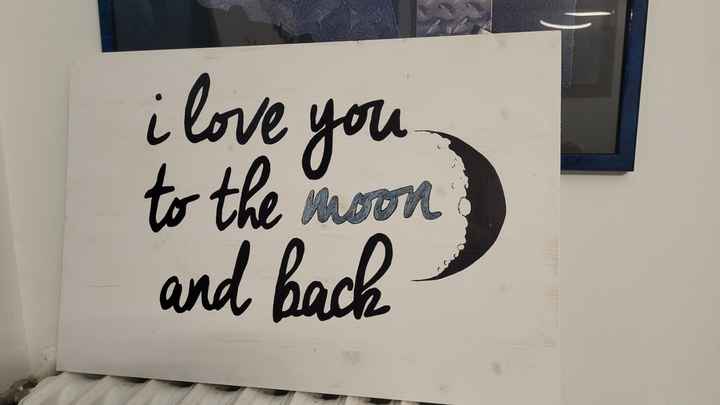 i love you
to the moon
and back